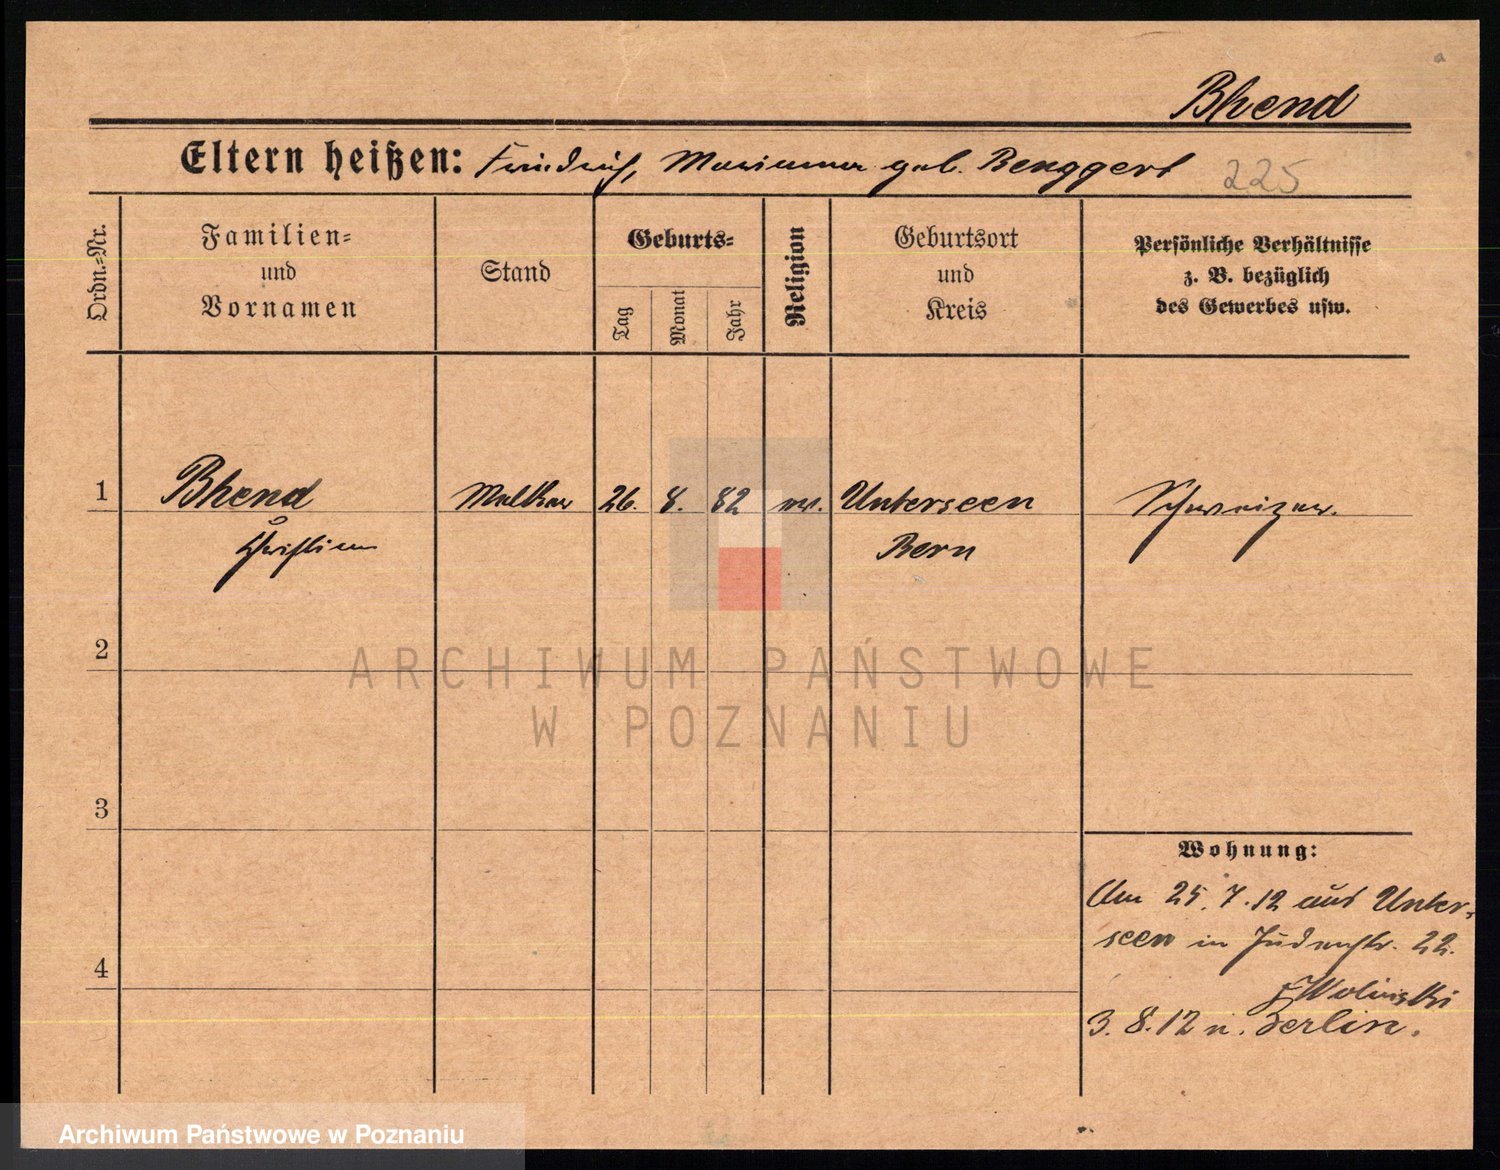 Bhend
Eltern heißen: Friedrich, Marianna geb. Benggert 225
Ordn.=Nr.
Familien=
und
Vornamen
Stand
Geburts=
Tag
Monat
Jahr
Religion
Geburtsort
und
Kreis
Persönliche Verhältnisse
z. B. bezüglich
des Gewerbes usw.
1 Bhend 26. 8. 82 ev. Unterseen Schweizer.
Christian Bern
2
3
4
Wohnung:
Am 25.7.12 aus Unter-
seen in Judenstr. 22.
Wolinski
3.8.12 n. Berlin.
ARCHIWUM PAŃSTWOWE
W POZNANIU
Archiwum Państwowe w Poznaniu